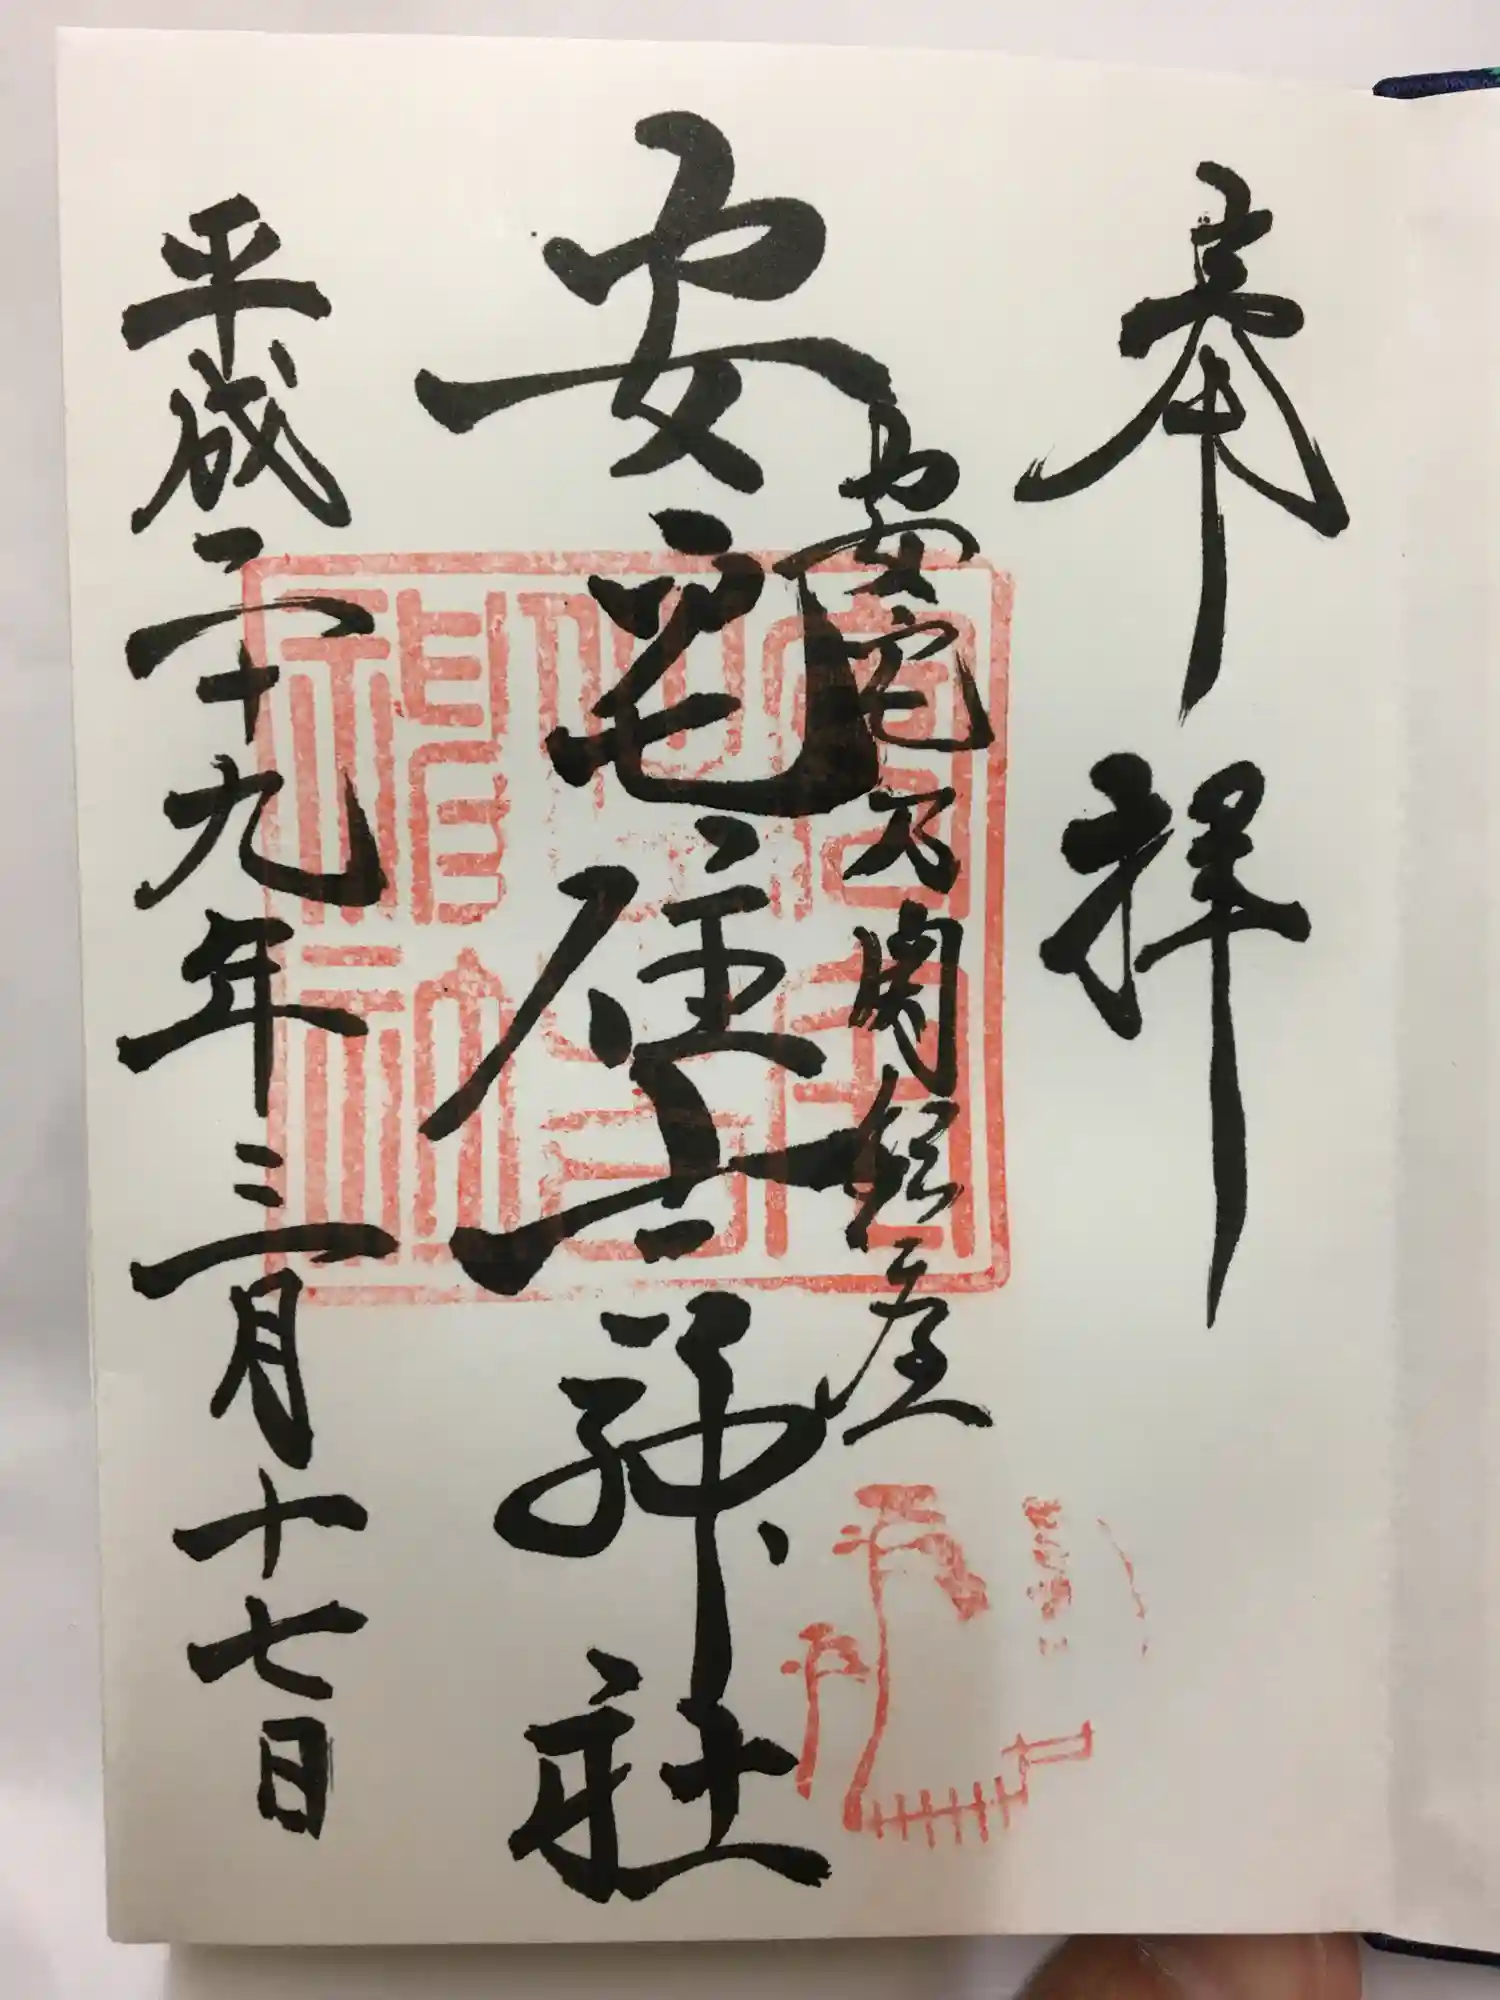 奉拝
安宅乃関鎮座
安宅住吉神社
平成二十九年三月十七日